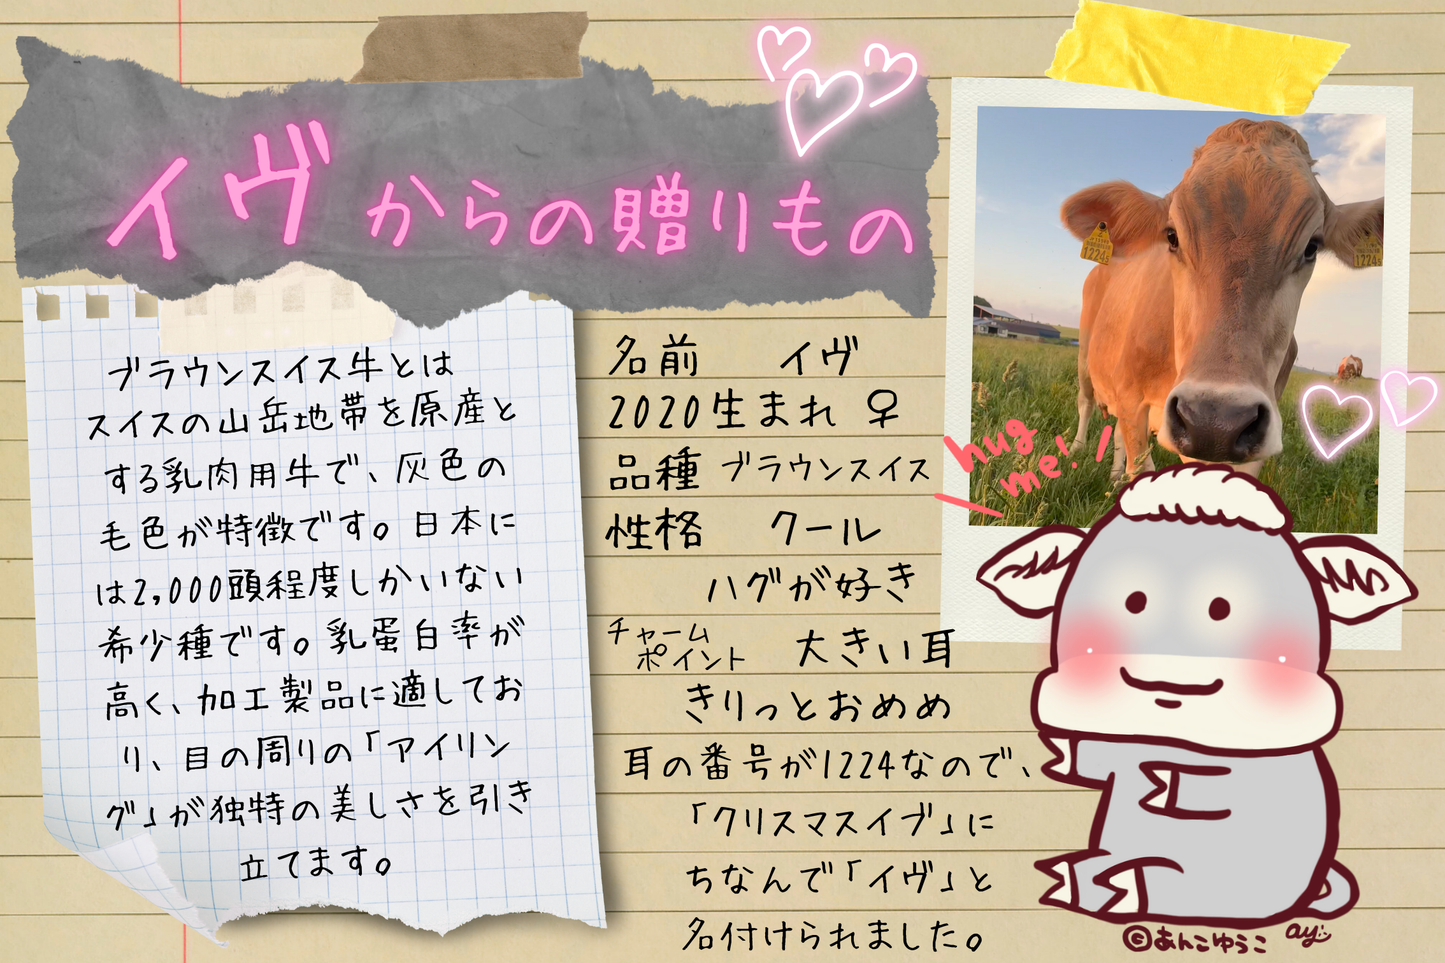 イヴからの贈りもの
ブラウンスイス牛とは
スイスの山岳地帯を原産と
する乳肉用牛で、灰色の
毛色が特徴です。日本に
は2,000頭程度しかいない
希少種です。乳蛋白率が
高く、加工製品に適してお
り、目の周りの「アイリン
グ」が独特の美しさを引き
立てます。
名前 イヴ
2020生まれ ♀
品種 ブラウンスイス
性格 クール
ハグが好き
チャーム
ポイント 大きい耳
きりっとおめめ
耳の番号が1224なので、
「クリスマスイブ」に
ちなんで「イヴ」と
名付けられました。
1224
1224
hug
me!
©あんこゆうこ ay